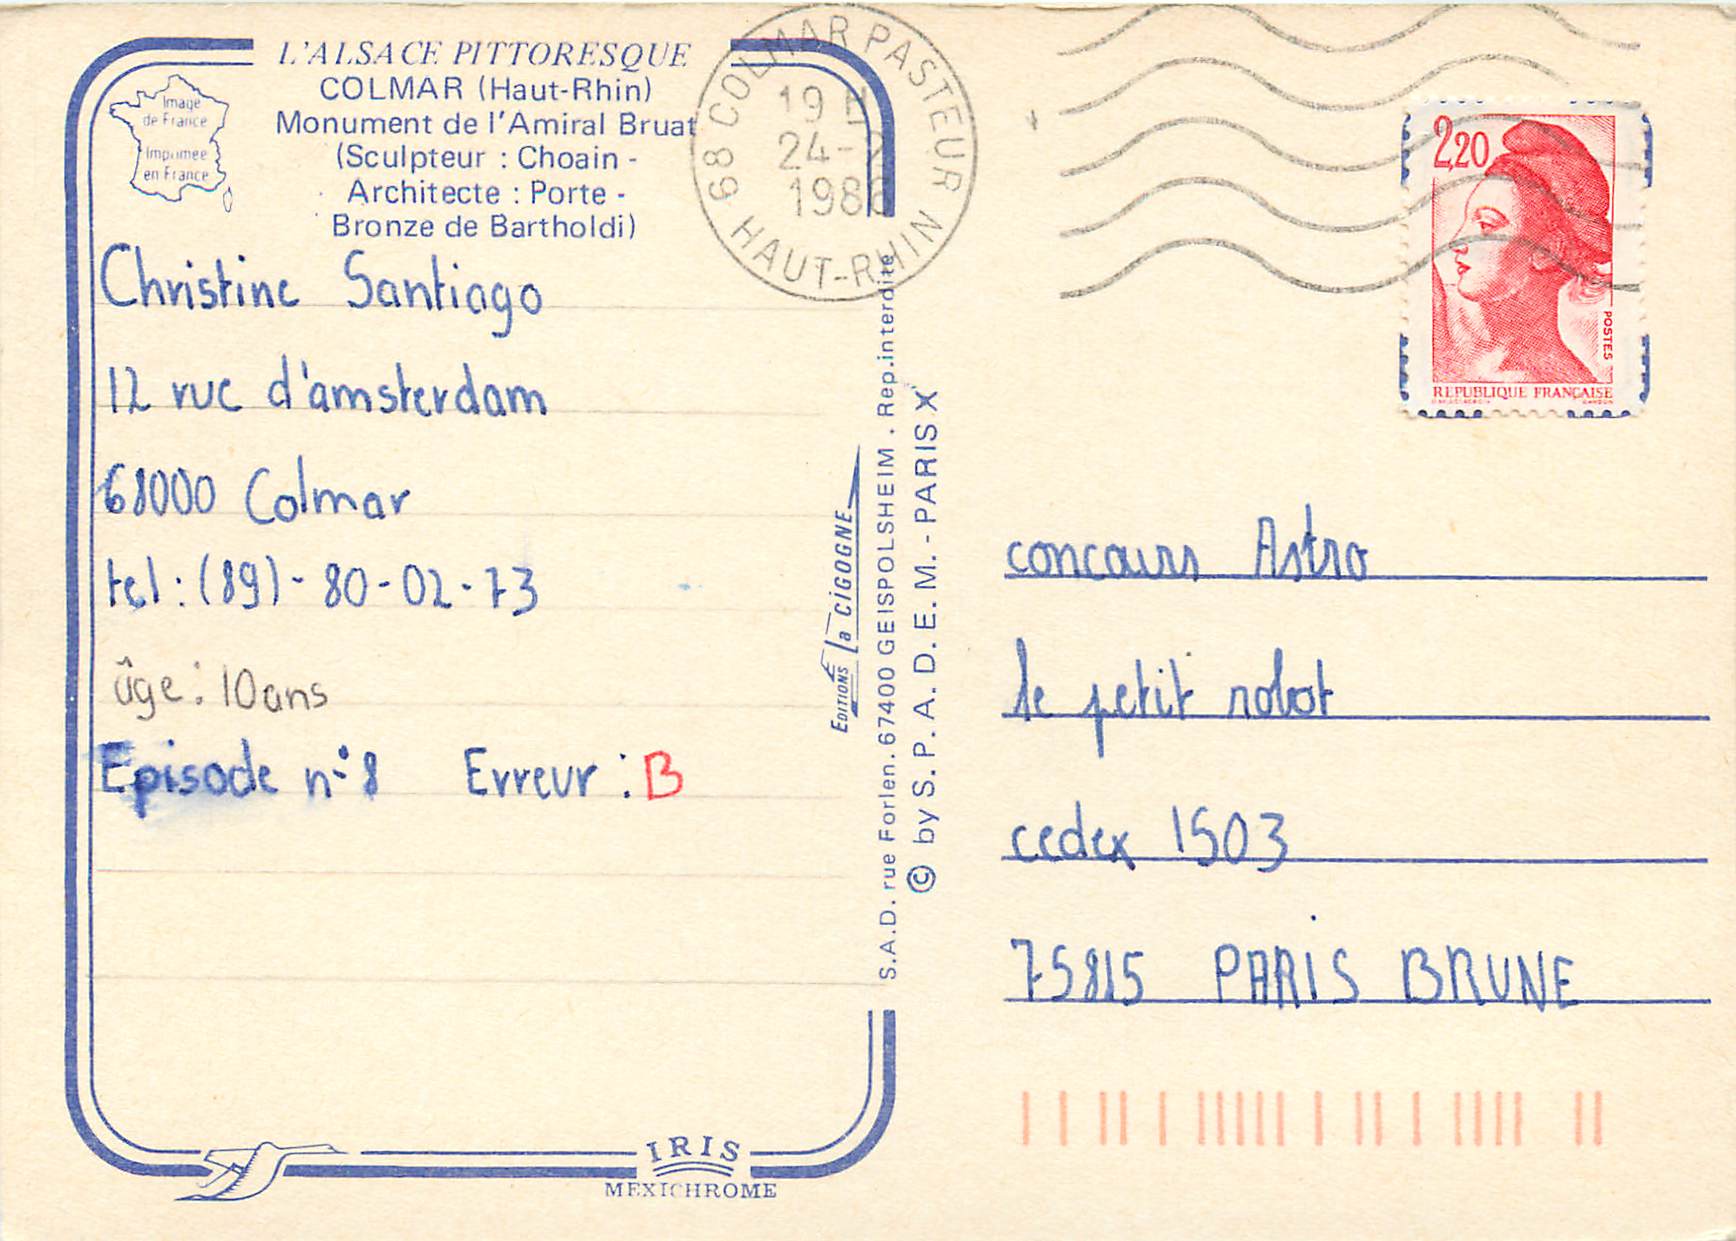 L'ALSACE PITTORESQUE
COLMAR (Haut-Rhin)
Monument de l'Amiral Bruat
(Sculpteur : Choain -
Architecte : Porte -
Bronze de Bartholdi)
Image
de France
Imprimée
en France
Christine Santiago
12 rue d'amsterdam
68000 Colmar
tel : (89) - 80-02-73
âge : 10 ans
Episode n°8 Erreur : B
IRIS
MEXICHROME
EDITIONS la CIGOGNE
S.A.D. rue Forlen. 67400 GEISPOLSHEIM . Rep. interdite
© by S. P. A. D. E. M. - PARIS X
68 COLMAR PASTEUR
19 H
24-
1986
HAUT-RHIN
2,20
POSTES
REPUBLIQUE FRANÇAISE
concours Astro
le petit robot
cedex 1503
75815 PARIS BRUNE